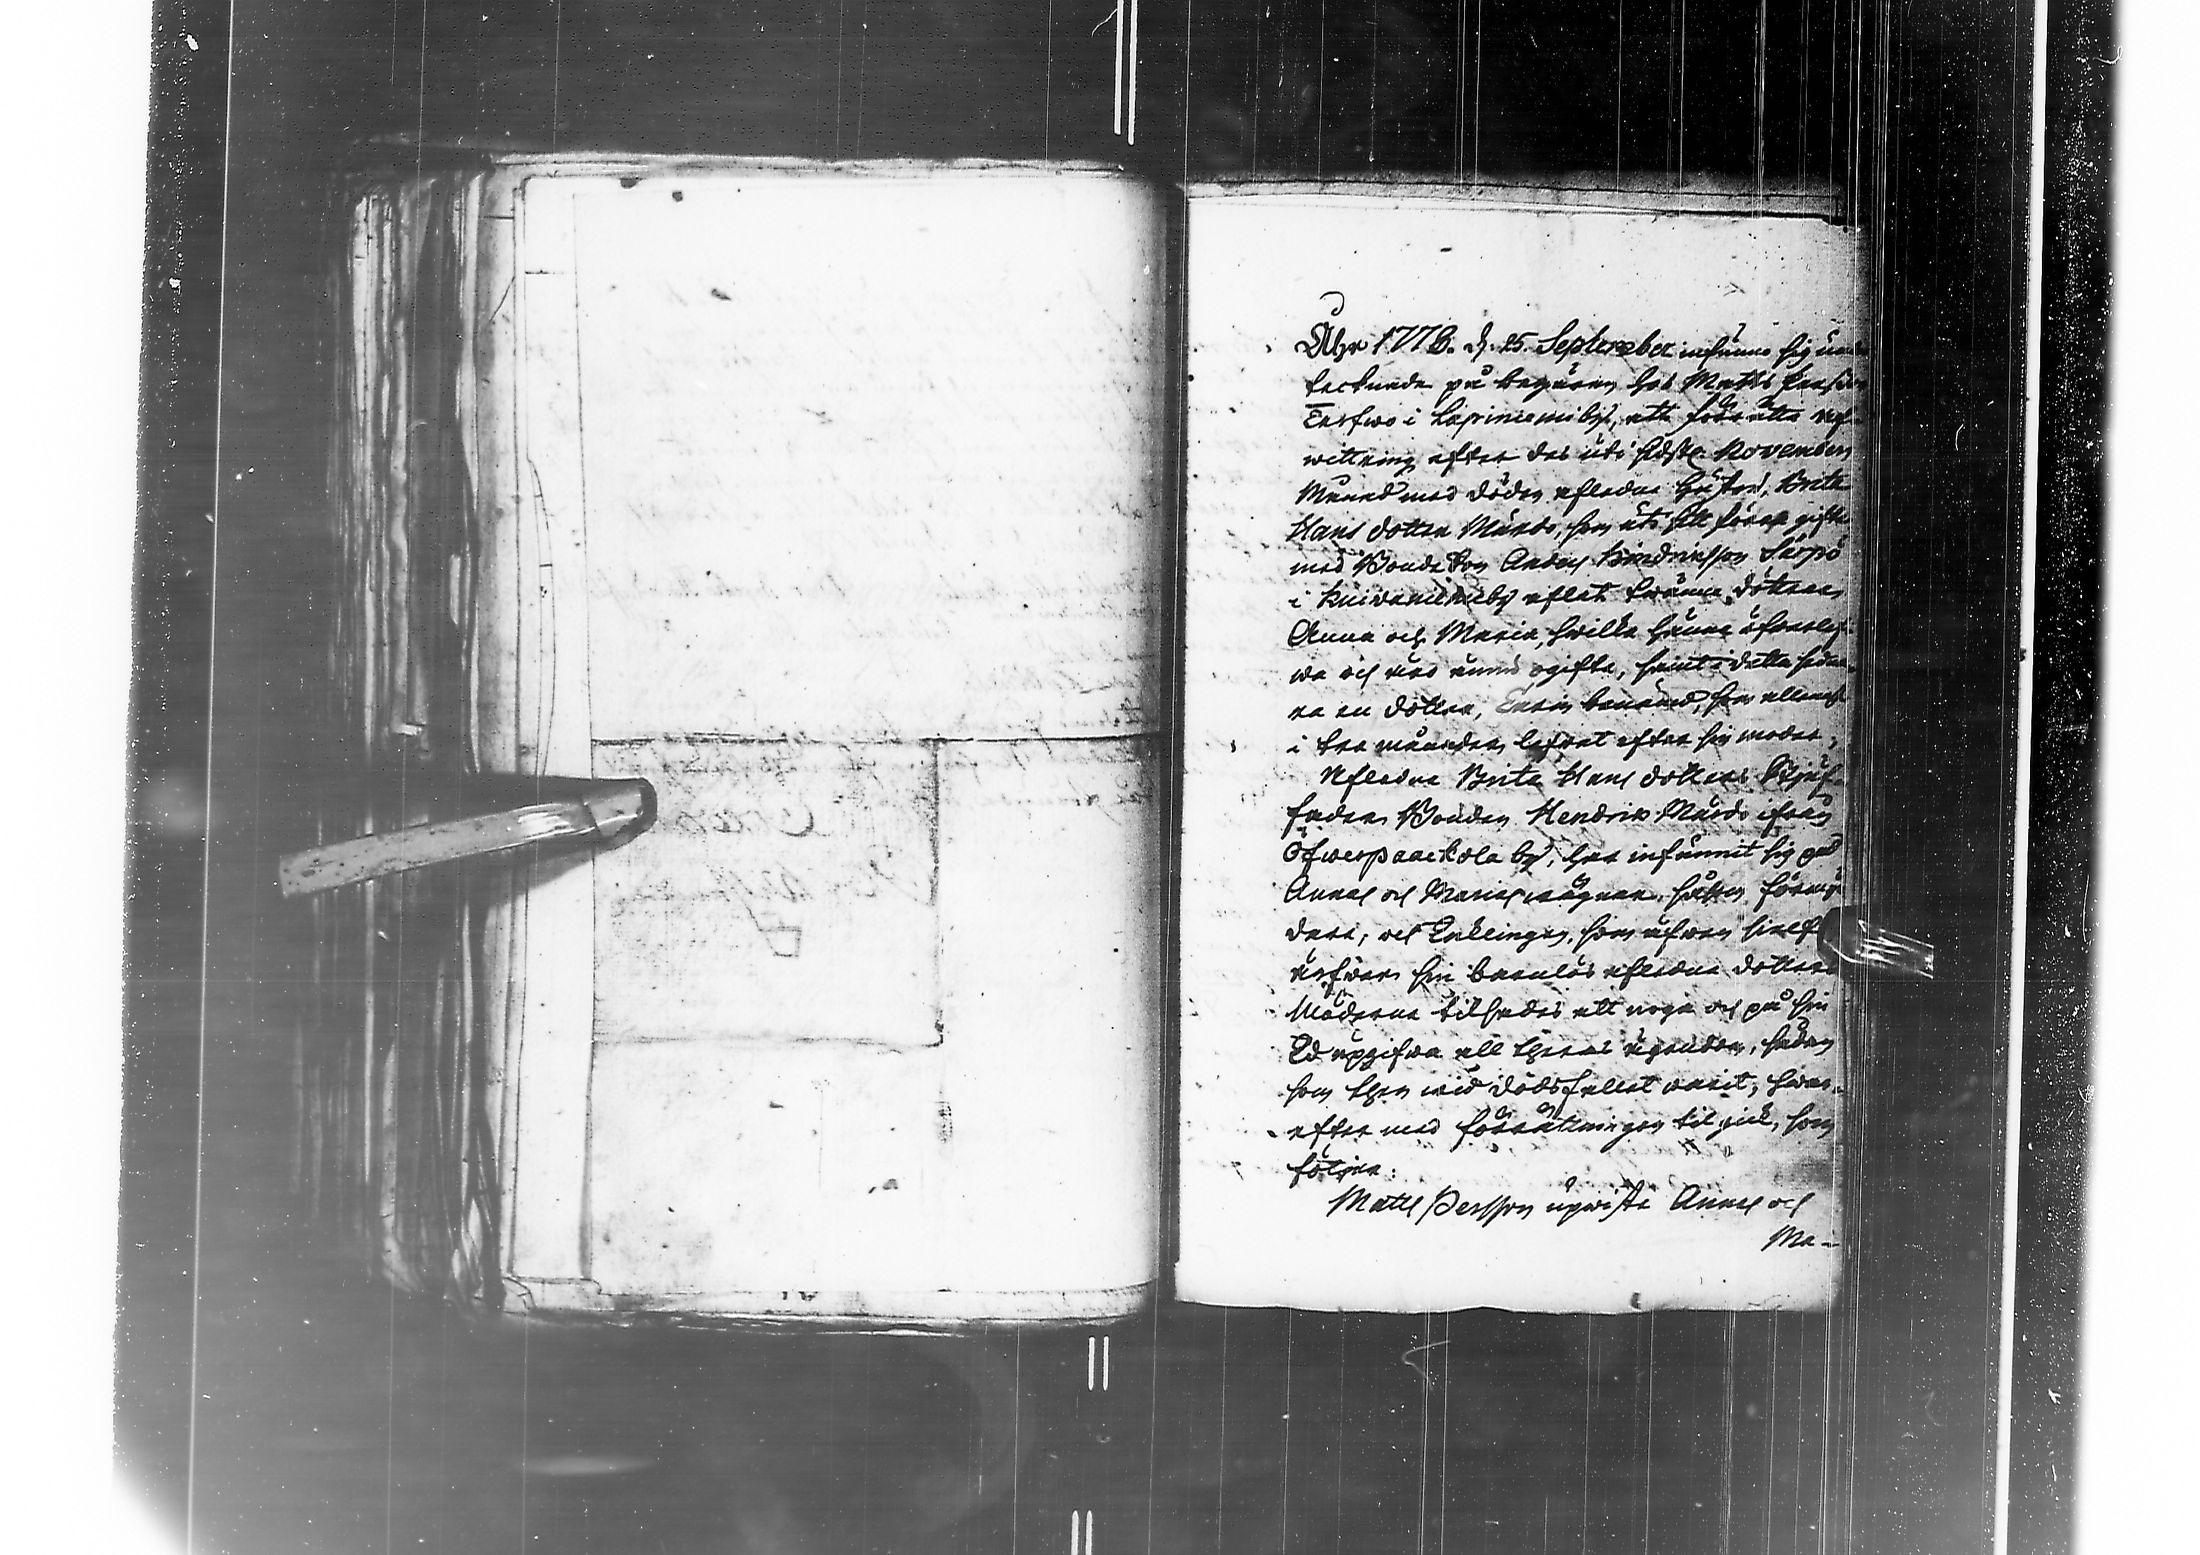 Åhr 1773. d. 25. September infunno sig und
tecknade på begäran hos Matts Persson
Tarfwo i Lapiniemi by, att förrätta arf
wittring efter des uti sidste November
Månad med döden afledne Hustru, Brita
Hans dotter Murdo, som uti sitt förra gifte
med Bonde Son Anders Hindricsson Särpö
i Kuiwaniemi by aflat twänne döttrar
Anna och Maria, hwilka henne öfwerlef-
wa och äro ännu ogifta, samt i detta sedna-
re en dotter, Carin benämd, som allenast
i tre månader lefwat efter sin moder;
Afledne Brita Hans dotters Stjuf-
fader Bonden Hendric Murdo ifrån
Öfwerpaackola by, har infunnit sig på
Annas och Marias wägnar, såsom förmyn
dare, och Enklingen, som äfwen sielf
ärfwer sin barnlös afledne dotters
Moderne tilsades att noga och på sin
Ed upgifwa all theras ägendom, sådan
som then wid dödsfallet warit, hwar-
efter med förrättningen til gick, som
följer:
Matts Persson upwiste Annas och
Ma-